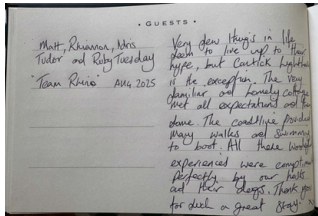 • GUESTS •
Matt, Rhiannon, Idris,
Tudor and Ruby Tuesday
"Team Rhino" AUG 2025
Very few things in life
seem to live up to their
hype, but Cantick Lighthouse
is the exception. The very
familiar and homely cottage
met all expectations and
done. The coastline provided
many walks and swimming
to boot. All these wonderful
experienced were complimented
perfectly by our hosts
and their dogs. Thank you
for such a great stay.